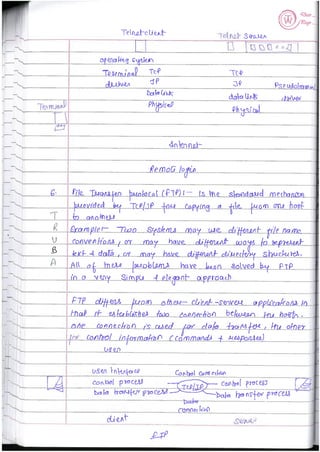 Telnet client Telnet Server
operating System
Terminal TCP TCP
driver IP IP Pseudoterminal
Datalink data link driver
Terminal Physical Physical
Internet
Remote login
6. File Transfer protocol (FTP):- Is the standard mechanism
provided by TCP/IP for copying a file from one host
to another
Example:- Two systems may use different file name
conventions, or may have different ways to represent
text & data, or may have different directory structures.
All of these problems have been solved by FTP
in a very simple & elegant approach
T
R
U
B
A
FTP differs from other client-server applications in
that it establishes two connection between the hosts.
one connection is used for data transfer, the other
for control information (commands & responses)
user
user Interface Control Connection
control process TCP/IP control process
Data transfer process Data transfer process
Data
connection
client Server
FTP